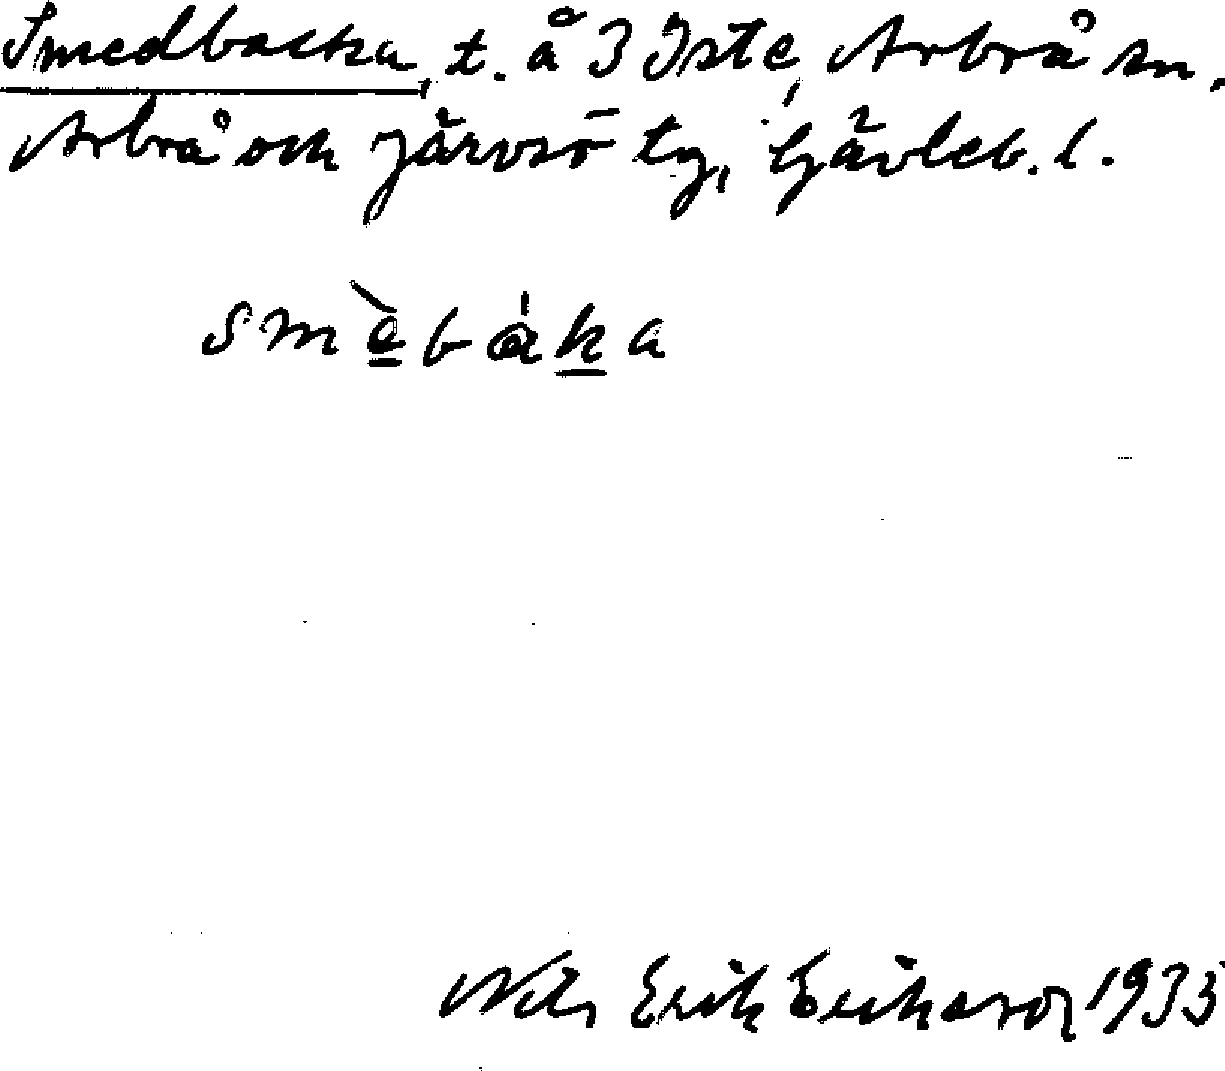 Smedbacka, t. å 3 Iste, Arbrå sn,
Arbrå och Järvsö tg, Gävleb. l.
smèbáka
Nils Erik Erikson 1933